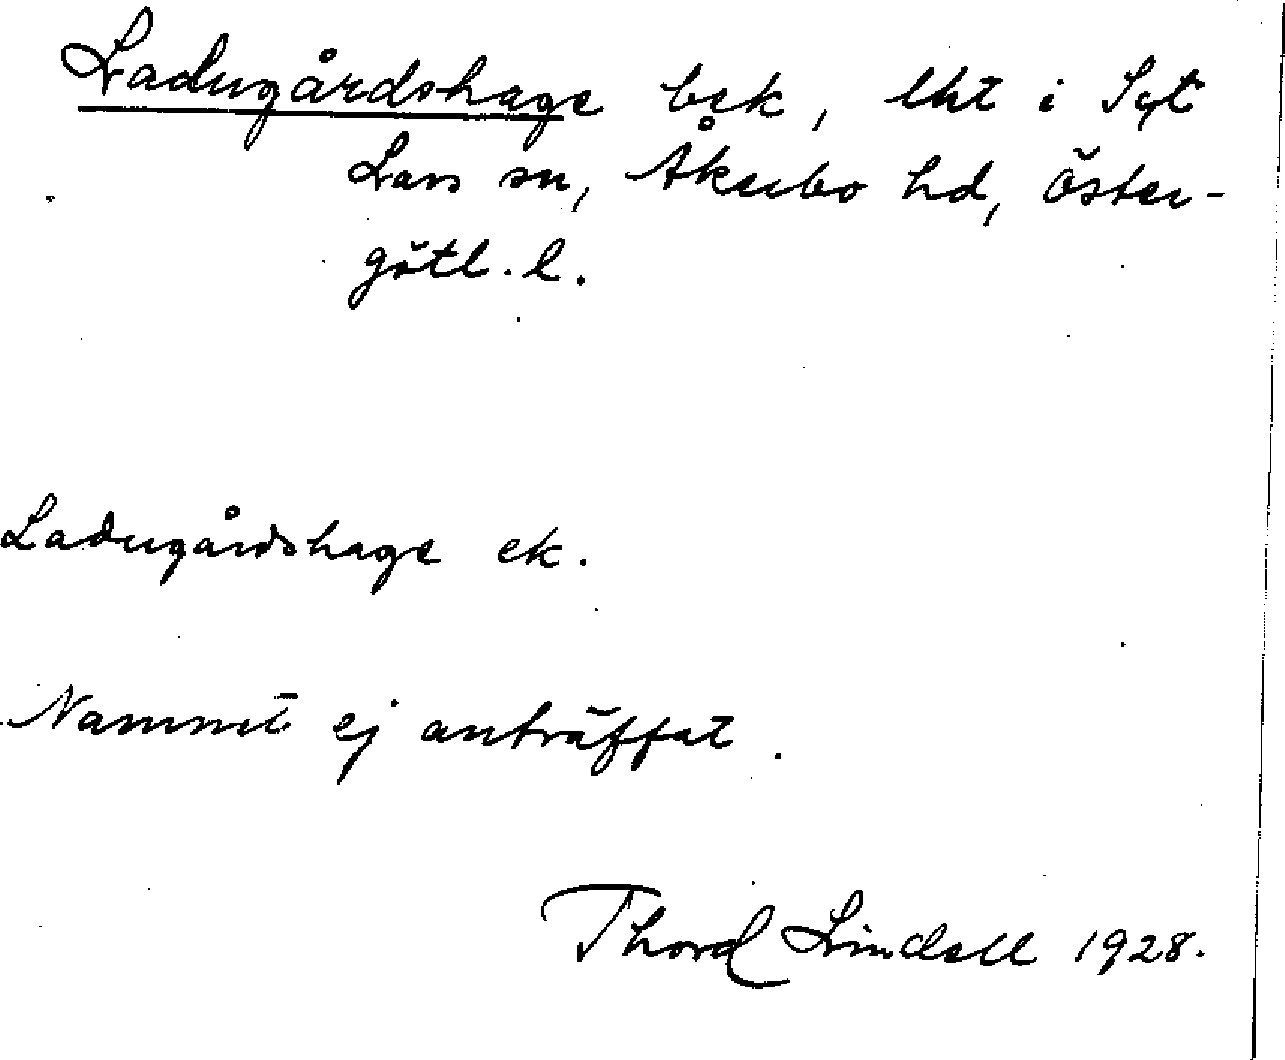 Ladugårdshage bek, lht i Sqt
Lars sn, Åkerbo hd, Öster-
götl. l.
Ladugårdshage ek.
Namnet ej anträffat.
Thord Lindell 1928.